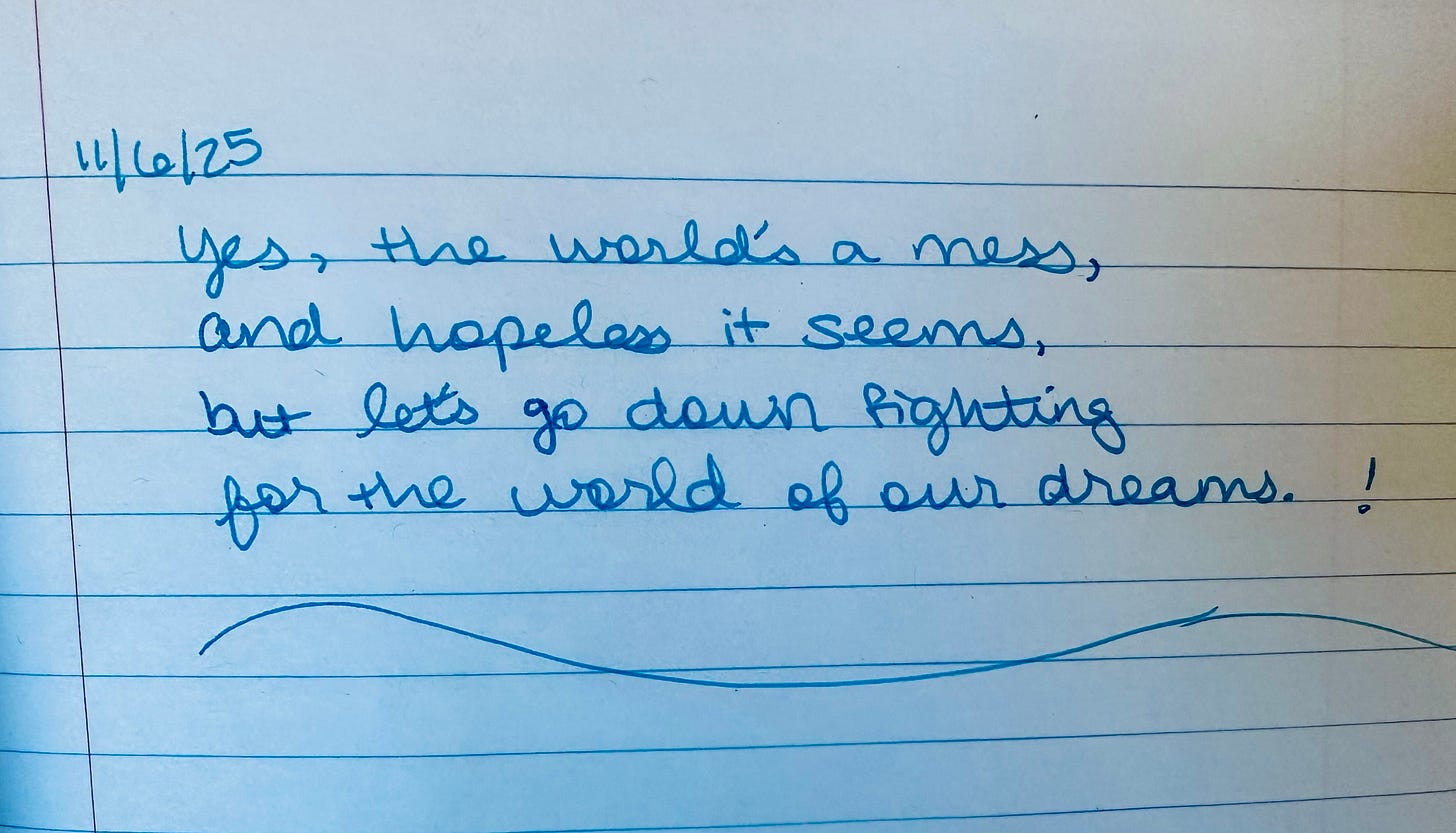 11/6/25
Yes, the world's a mess,
and hopeless it seems,
but let's go down fighting
for the world of our dreams. !